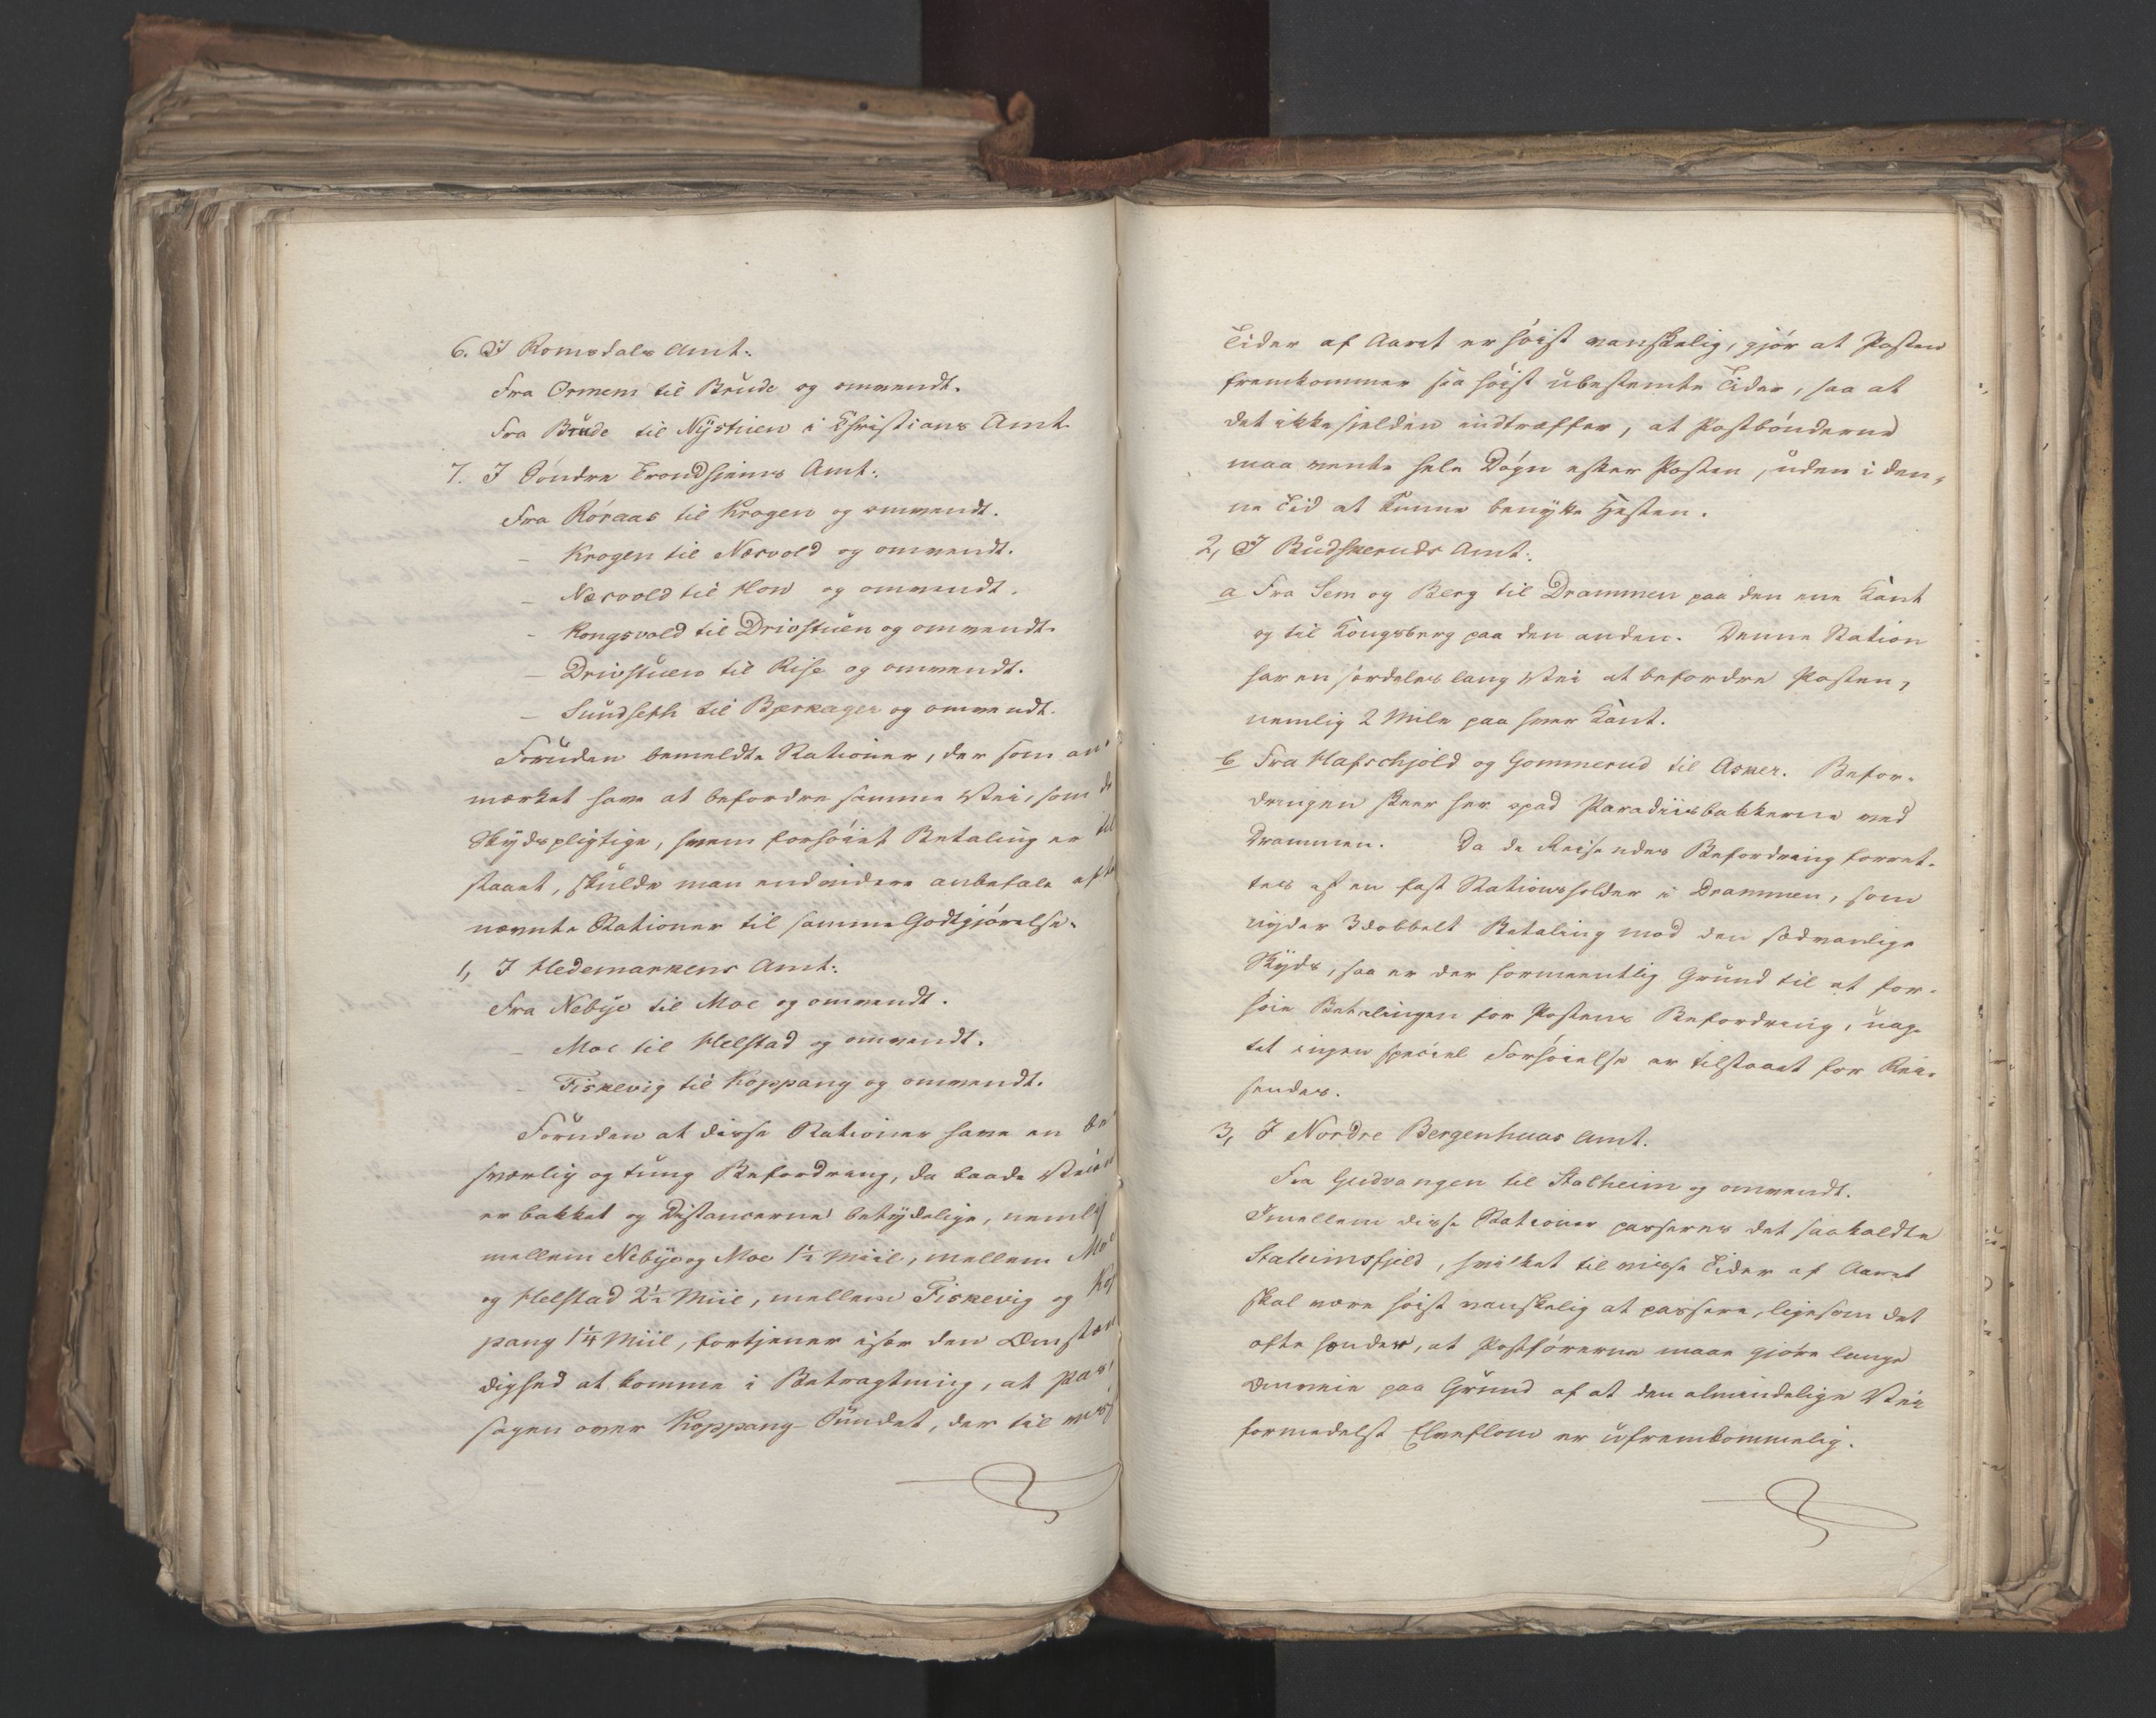 6. I Romsdals Amt:
Fra Ormem til Brude og omvendt.
Fra Brude til Nystuen i Christians Amt
7. I Søndre Trondhjems Amt:
Fra Røraas til Krogen og omvendt.
– Krogen til Næsvold og omvendt.
– Næsvold til Hov og omvendt.
– Kongsvold til Drivstuen og omvendt.
– Drivstuen til Rise og omvendt.
– Sundseth til Bjerkager og omvendt.
Foruden bemeldte Stationer, der som an¬
mærket have at befordre samme Vei, som de
Skydspligtige, hvem forhøiet Betaling er til
staaet, skulde man endvidere anbefale efter
nævnte Stationer til samme Godtgjørelse.
1, I Hedemarkens Amt:
Fra Nebye til Moe og omvendt.
– Moe til Helstad og omvendt.
– Fiskevig til Koppang og omvendt.
Foruden at disse Stationer have en be
sværlig og tung Befordring, da baade Veien
er bakket og Distancerne betydelige, nemlig
mellem Nebye og Moe 1½ Miil, mellem Moe
og Helstad 2½ Miil, mellem Fiskevig og Kop
pang 1¼ Miil, fortjener især den Omstæn
dighed at komme i Betragtning, at Pas¬
sagen over Koppang Sundet, der til visse
Tider af Aaret er høist vanskelig, gjør at Posten
fremkommer paa høist ubestemte Tider, saa at
det ikke sielden indtræffer, at Postbønderne
maa vente hele Døgn efter Posten, uden i den¬
ne Tid at kunne benytte Hesten.
2, I Budskeruds Amt:
a Fra Sem og Berg til Drammen paa den ene Kant
og til Kongsberg paa den anden. Denne Station
har en særdeles lang Vei at befordre Posten,
nemlig 2 Mile paa hver Kant.
b Fra Hafschjold og Gommerud til Asker. Befor¬
dringen skeer her opad Paradiisbakkerne ved
Drammen. Da de Reisendes Befordring forret¬
tes af en fast Stationsholder i Drammen, som
nyder 3dobbelt Betaling mod den sædvanlige
Skyds, saa er der formeentlig Grund til at for¬
høie Betalingen for Postens Befordring, uag¬
tet ingen speciel Forhøielse er tilstaaet for Rei¬
sendes.
3, I Nordre Bergenhuus Amt.
Fra Gudvangen til Stalheim og omvendt.
Imellem disse Stationer passeres det saakaldte
Staleimsfjeld, hvilket til visse Tider af Aaret
skal være høist vanskelig at passere, ligesom det
ofte hænder, at Postførerne maae gjøre lange
Omveie paa Grund af at den almindelige Vei
formedelst Elveflom er ufremkommelig.